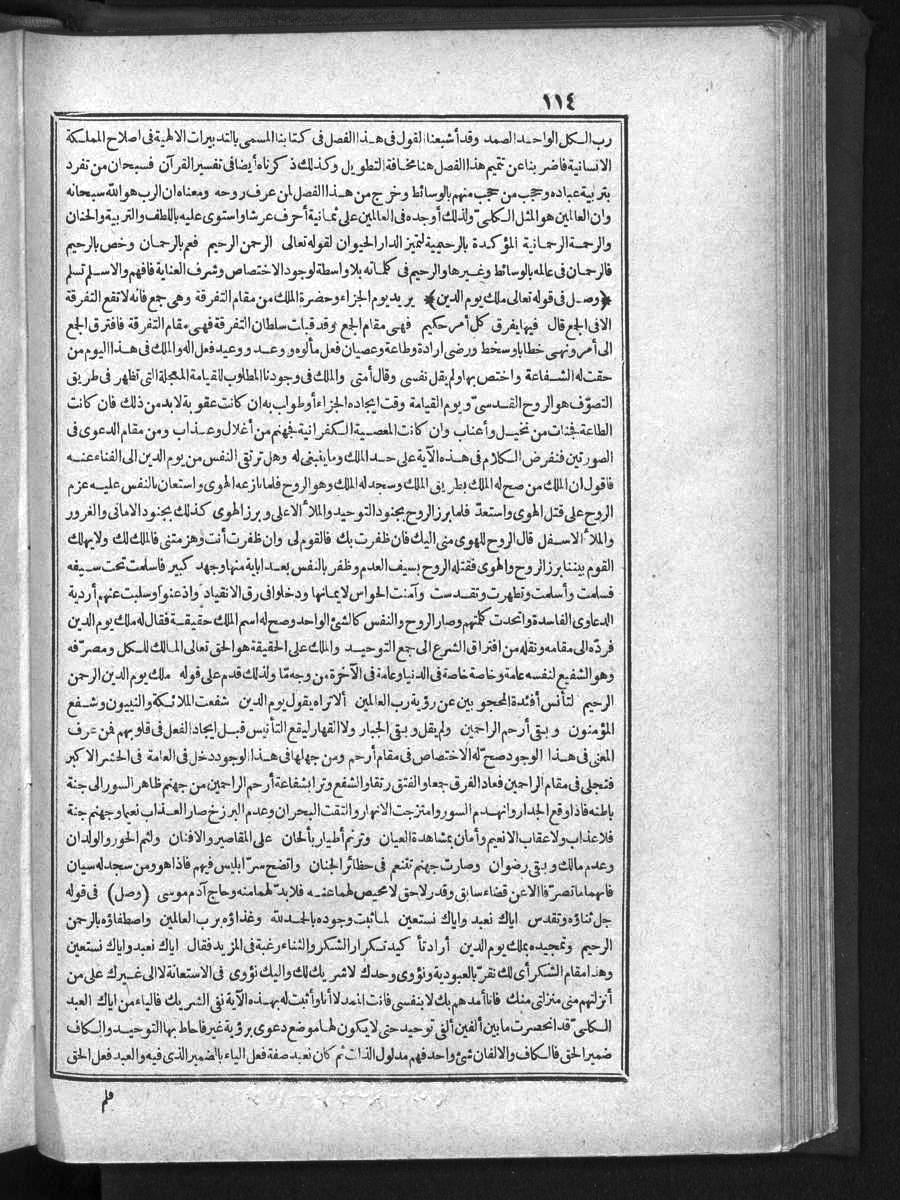 ١١٤
رب الكل الواحد الصمد وقد أشبعنا القول فى هذا الفصل فى كتابنا المسمى بالتدبيرات الالهية فى اصلاح المملكة
الانسانية فاضربنا عن تتميم هذا الفصل هنا مخافة التطويل وكذلك ذكرناه أيضا فى تفسير القرآن فسبحان من تفرد
بتربية عباده وحجب من حجب منهم بالوسائط وخرج من هذا الفصل لمن عرف روحه ومعناه ان الرب هو الله سبحانه
وان العالمين هو المثل الكلىّ ولذلك أوجده فى العالمين على ثمانية أحرف عرشا واستوى عليه باللطف والتربية والحنان
والرحمة الرحمانية المؤكدة بالرحيمية لتميز الدار الحيوان لقوله تعالى الرحمن الرحيم فعم بالرحمان وخص بالرحيم
فالرحمان فى عالمه بالوسائط وغيرها والرحيم فى كلماته بلا واسطة لوجود الاختصاص وشرف العناية فافهم والا سلم تسلم
﴿وصل فى قوله تعالى ملك يوم الدين﴾ يريد يوم الجزاء وحضرة الملك من مقام التفرقة وهى جمع فانه لا تقع التفرقة
الا فى الجمع قال فيها يفرق كل أمر حكيم فهى مقام الجمع وقد قبات سلطان التفرقة فهى مقام التفرقة فافترق الجمع
الى أمر ونهى خطابا وسخط ورضى ارادة وطاعة وعصيان فعل مألوه ووعد ووعيد فعل اله والملك فى هذا اليوم من
حقت له الشفاعة واختص بها ولم يقل نفسى وقال أمتى والملك فى وجودنا المطلوب للقيامة المعجلة التى تظهر فى طريق
التصوّف هو الروح القدسىّ ويوم القيامة وقت ايجاده الجزاء أو طولب به ان كانت عقوبة لابد من ذلك فان كانت
الطاعة فجنات من نخيل وأعناب وان كانت المعصية الكفرانية فجهنم من أغلال وعذاب ومن مقام الدعوى فى
الصورتين فنفرض الكلام فى هذه الآية على حد الملك وما ينبغى له وهل ترتقى النفس من يوم الدين الى الفناء عنه
فاقول ان الملك من صح له الملك بطريق الملك وسجد له الملك وهو الروح فلما نازعه الهوى واستعان بالنفس عليه عزم
الروح على قتل الهوى واستعدّ فلما برز الروح بجنود التوحيد والملأ الاعلى وبرز الهوى كذلك بجنود الامانى والغرور
والملأ الاسفل قال الروح للهوى منى اليك فان ظفرت بك فالقوم لى وان ظفرت أنت وهزمتنى فالملك لك ولا يهلك
القوم بيننا برز الروح والهوى فقتله الروح بسيف العدم وظفر بالنفس بعد اباية منها وجهد كبير فاسلمت تحت سيفه
فسلمت وأسلمت وتطهرت وتقدست وآمنت الحواس لايمانها ودخلوا فى رق الانقياد واذعنوا وسلبت عنهم أردية
الدعاوى الفاسدة واتحدت كلمتهم وصار الروح والنفس كالشئ الواحد وصح له اسم الملك حقيقة فقال له ملك يوم الدين
فردّه الى مقامه ونقله من افتراق الشرع الى جمع التوحيد والملك على الحقيقة هو الحق تعالى المالك للكل ومصرّفه
وهو الشفيع لنفسه عامة وخاصة خاصة فى الدنيا وعامة فى الآخرة من وجه مّا ولذلك قدم على قوله ملك يوم الدين الرحمن
الرحيم لتأنس أفئدة المحجوبين عن رؤية رب العالمين ألا تراه يقول يوم الدين شفعت الملائكة والنبيون وشفع
المؤمنون وبقى أرحم الراحمين ولم يقل وبقى الجبار ولا القهار ليقع التأنيس قبل ايجاد الفعل فى قلوبهم فمن عرف
المعنى فى هذا الوجود صح له الاختصاص فى مقام أرحم ومن جهلها فى هذا الوجود دخل فى العامة فى الحشر الاكبر
فتجلى فى مقام الراحمين فعاد الفرق جمعا والفتق رتقا والشفع وترا بشفاعة أرحم الراحمين من جهنم ظاهر السور الى جنة
باطنه فاذا وقع الجدار وانهدم السور وامتزجت الانهار والتقت البحران وعدم البرزخ صار العذاب نعيما وجهنم جنة
فلا عذاب ولا عقاب الا نعيم وأمان بمشاهدة العيان وترنم أطيار بألحان على المقاصير والافنان ولثم الحور والولدان
وعدم مالك وبقى رضوان وصارت جهنم تتنعم فى حظائر الجنان واتضح سرّ ابليس فيهم فاذا هو ومن سجد له سيان
فانهما ما تصرّفا الا عن قضاء سابق وقدر لاحق لا محيص لهما عنه فلا بدّ لهما منه وحاج آدم موسى (وصل) فى قوله
جل ثناؤه وتقدس اياك نعبد واياك نستعين لما ثبت وجوده بالحمد لله وغذاؤه برب العالمين واصطفاؤه بالرحمن
الرحيم وتمجيده بملك يوم الدين أراد تأكيد تكرار الشكر والثناء رغبة فى المزيد فقال اياك نعبد واياك نستعين
وهذا مقام الشكر أى لك نقرّ بالعبودية ونؤوى وحدك لا شريك لك واليك نؤوى فى الاستعانة لا الى غيرك على من
أنزلتهم منى منزلتى منك فانا أمدهم بك لا بنفسى فانت الممد لا أنا وأثبت له بهذه الآية نفى الشريك فالياء من اياك العبد
الكلىّ قد انحصرت ما بين ألفين ألفى توحيد حتى لا يكون لها موضع دعوى برؤية غير فاحاط بها التوحيد والكاف
ضمير الحق فالكاف والالفان شئ واحد فهم مدلول الذات ثم كان نعبد صفة فعل الياء بالضمير الذى فيه والعبد فعل الحق
فلم